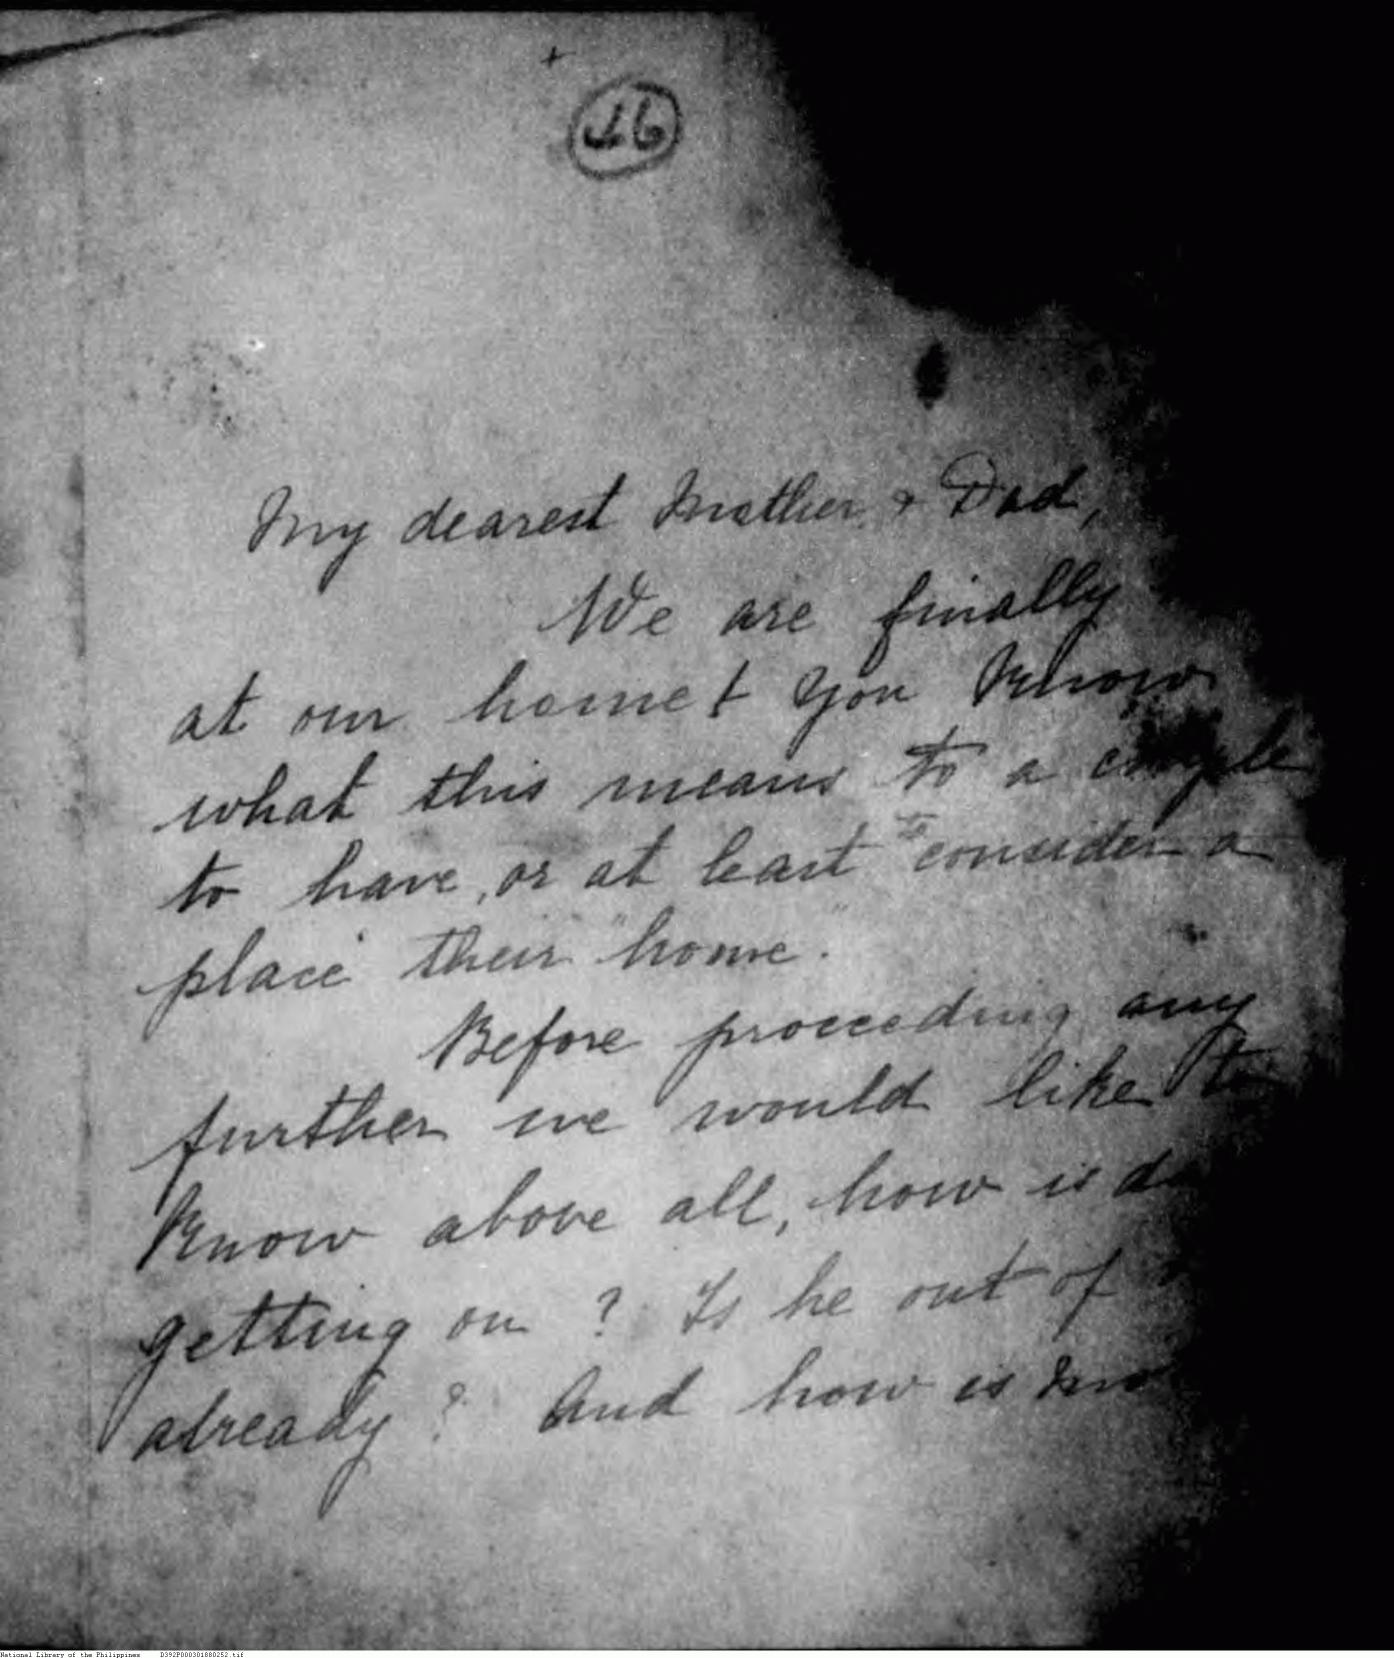 16
My dearest Mother & Dad,
We are finally
at our home & You Know
what this means to a couple
to have, or at least to consider a
place their "home."
Before proceeding any
further we would like to
Know above all, how is
getting on? Is he out of
already? And how is
National Library of the Philippines D392P000301880252.tif